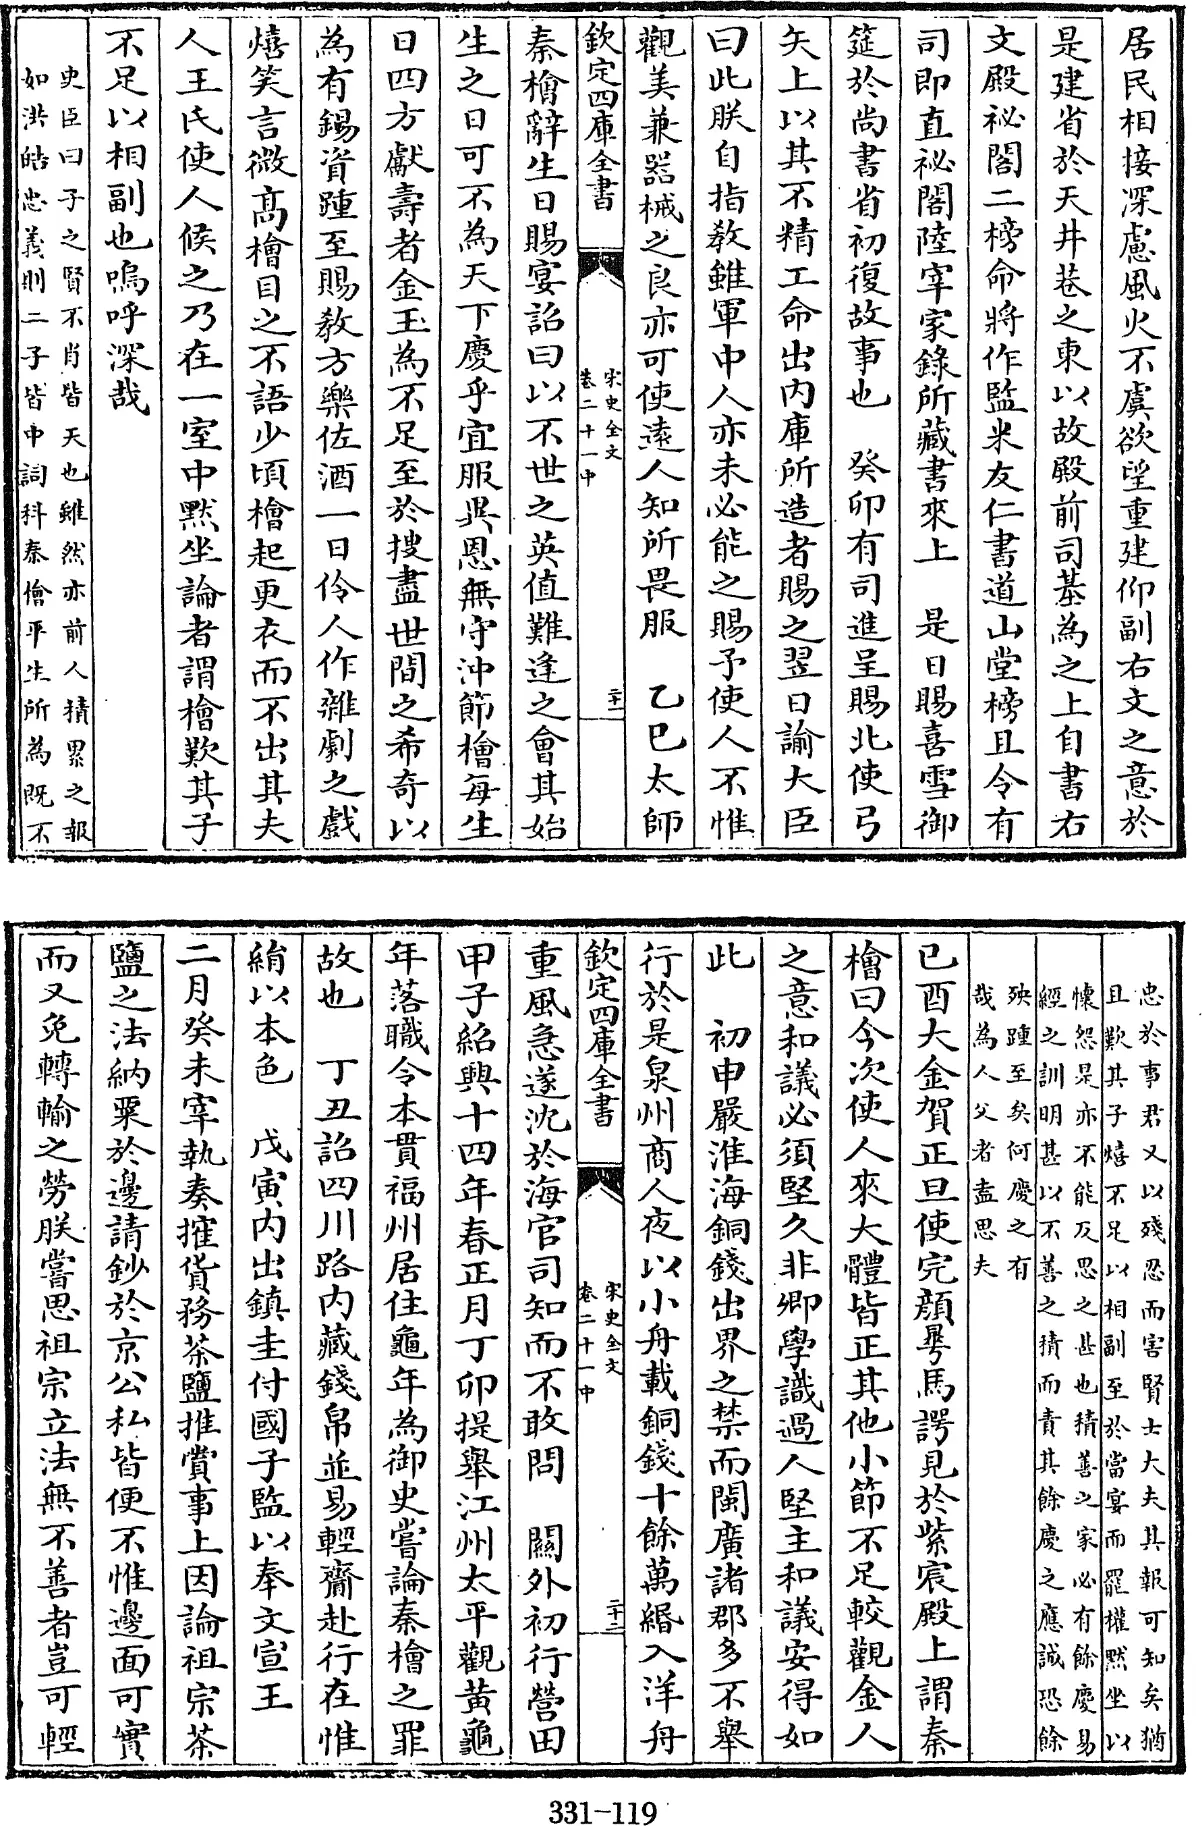 居民相接深慮風火不虞欲望重建仰副右文之意於
是建省於天井巷之東以故殿前司基為之上自書右
文殿祕閣二榜命將作監米友仁書道山堂榜且令有
司即直祕閣陸宰家錄所藏書來上　是日賜喜雪御
筵於尚書省初復故事也　癸卯有司進呈賜北使弓
矢上以其不精工命出內庫所造者賜之翌日諭大臣
曰此朕自指教雖軍中人亦未必能之賜予使人不惟
觀美兼器械之良亦可使遠人知所畏服　乙巳太師
欽定四庫全書
宋史全文
卷二十一中
二十一
秦檜辭生日賜宴詔曰以不世之英值難逢之會其始
生之日可不為天下慶乎宜服異恩無守沖節檜每生
日四方獻壽者金玉為不足至於搜盡世間之希奇以
為有錫賚踵至賜教方樂佐酒一日伶人作雜劇之戲
熺笑言微高檜目之不語少頃檜起更衣而不出其夫
人王氏使人候之乃在一室中默坐論者謂檜歎其子
不足以相副也嗚呼深哉
史臣曰子之賢不肖皆天也雖然亦前人積累之報
如洪皓忠義則二子皆中詞科秦檜平生所為既不
忠於事君又以殘忍而害賢士大夫其報可知矣猶
且歎其子熺不足以相副至於當宴而罷權默坐以
懷怨是亦不能反思之甚也積善之家必有餘慶易
經之訓明甚以不善之積而責其餘慶之應誠恐餘
殃踵至矣何慶之有
哉為人父者盍思夫
己酉大金賀正旦使完顏馬諤見於紫宸殿上謂秦
檜曰今次使人來大體皆正其他小節不足較觀金人
之意和議必須堅久非卿學識過人堅主和議安得如
此　初申嚴淮海銅錢出界之禁而閩廣諸郡多不舉
行於是泉州商人夜以小舟載銅錢十餘萬緡入洋舟
欽定四庫全書
宋史全文
卷二十一中
二十二
重風急遂沈於海官司知而不敢問　關外初行營田
甲子紹興十四年春正月丁卯提舉江州太平觀黃龜
年落職令本貫福州居住龜年為御史嘗論秦檜之罪
故也　丁丑詔四川路內藏錢帛並易輕齎赴行在惟
絹以本色　戊寅內出鎮圭付國子監以奉文宣王
二月癸未宰執奏搉貨務茶鹽推賞事上因論祖宗茶
鹽之法納粟於邊請鈔於京公私皆便不惟邊面可實
而又免轉輸之勞朕嘗思祖宗立法無不善者豈可輕
331-119